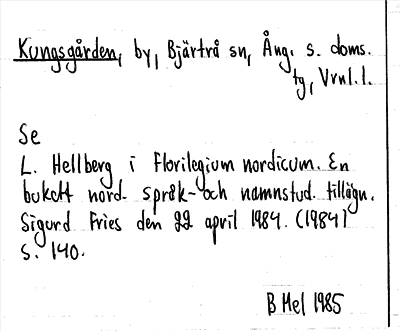 Kungsgården, by, Bjärtrå sn, Ång. s. doms.
tg, Vrnl. l.
Se
L. Hellberg i Florilegium nordicum. En
bukett nord. språk- och namnstud. tillägn.
Sigurd Fries den 22 april 1984. (1984)
s. 140.
B Mel 1985